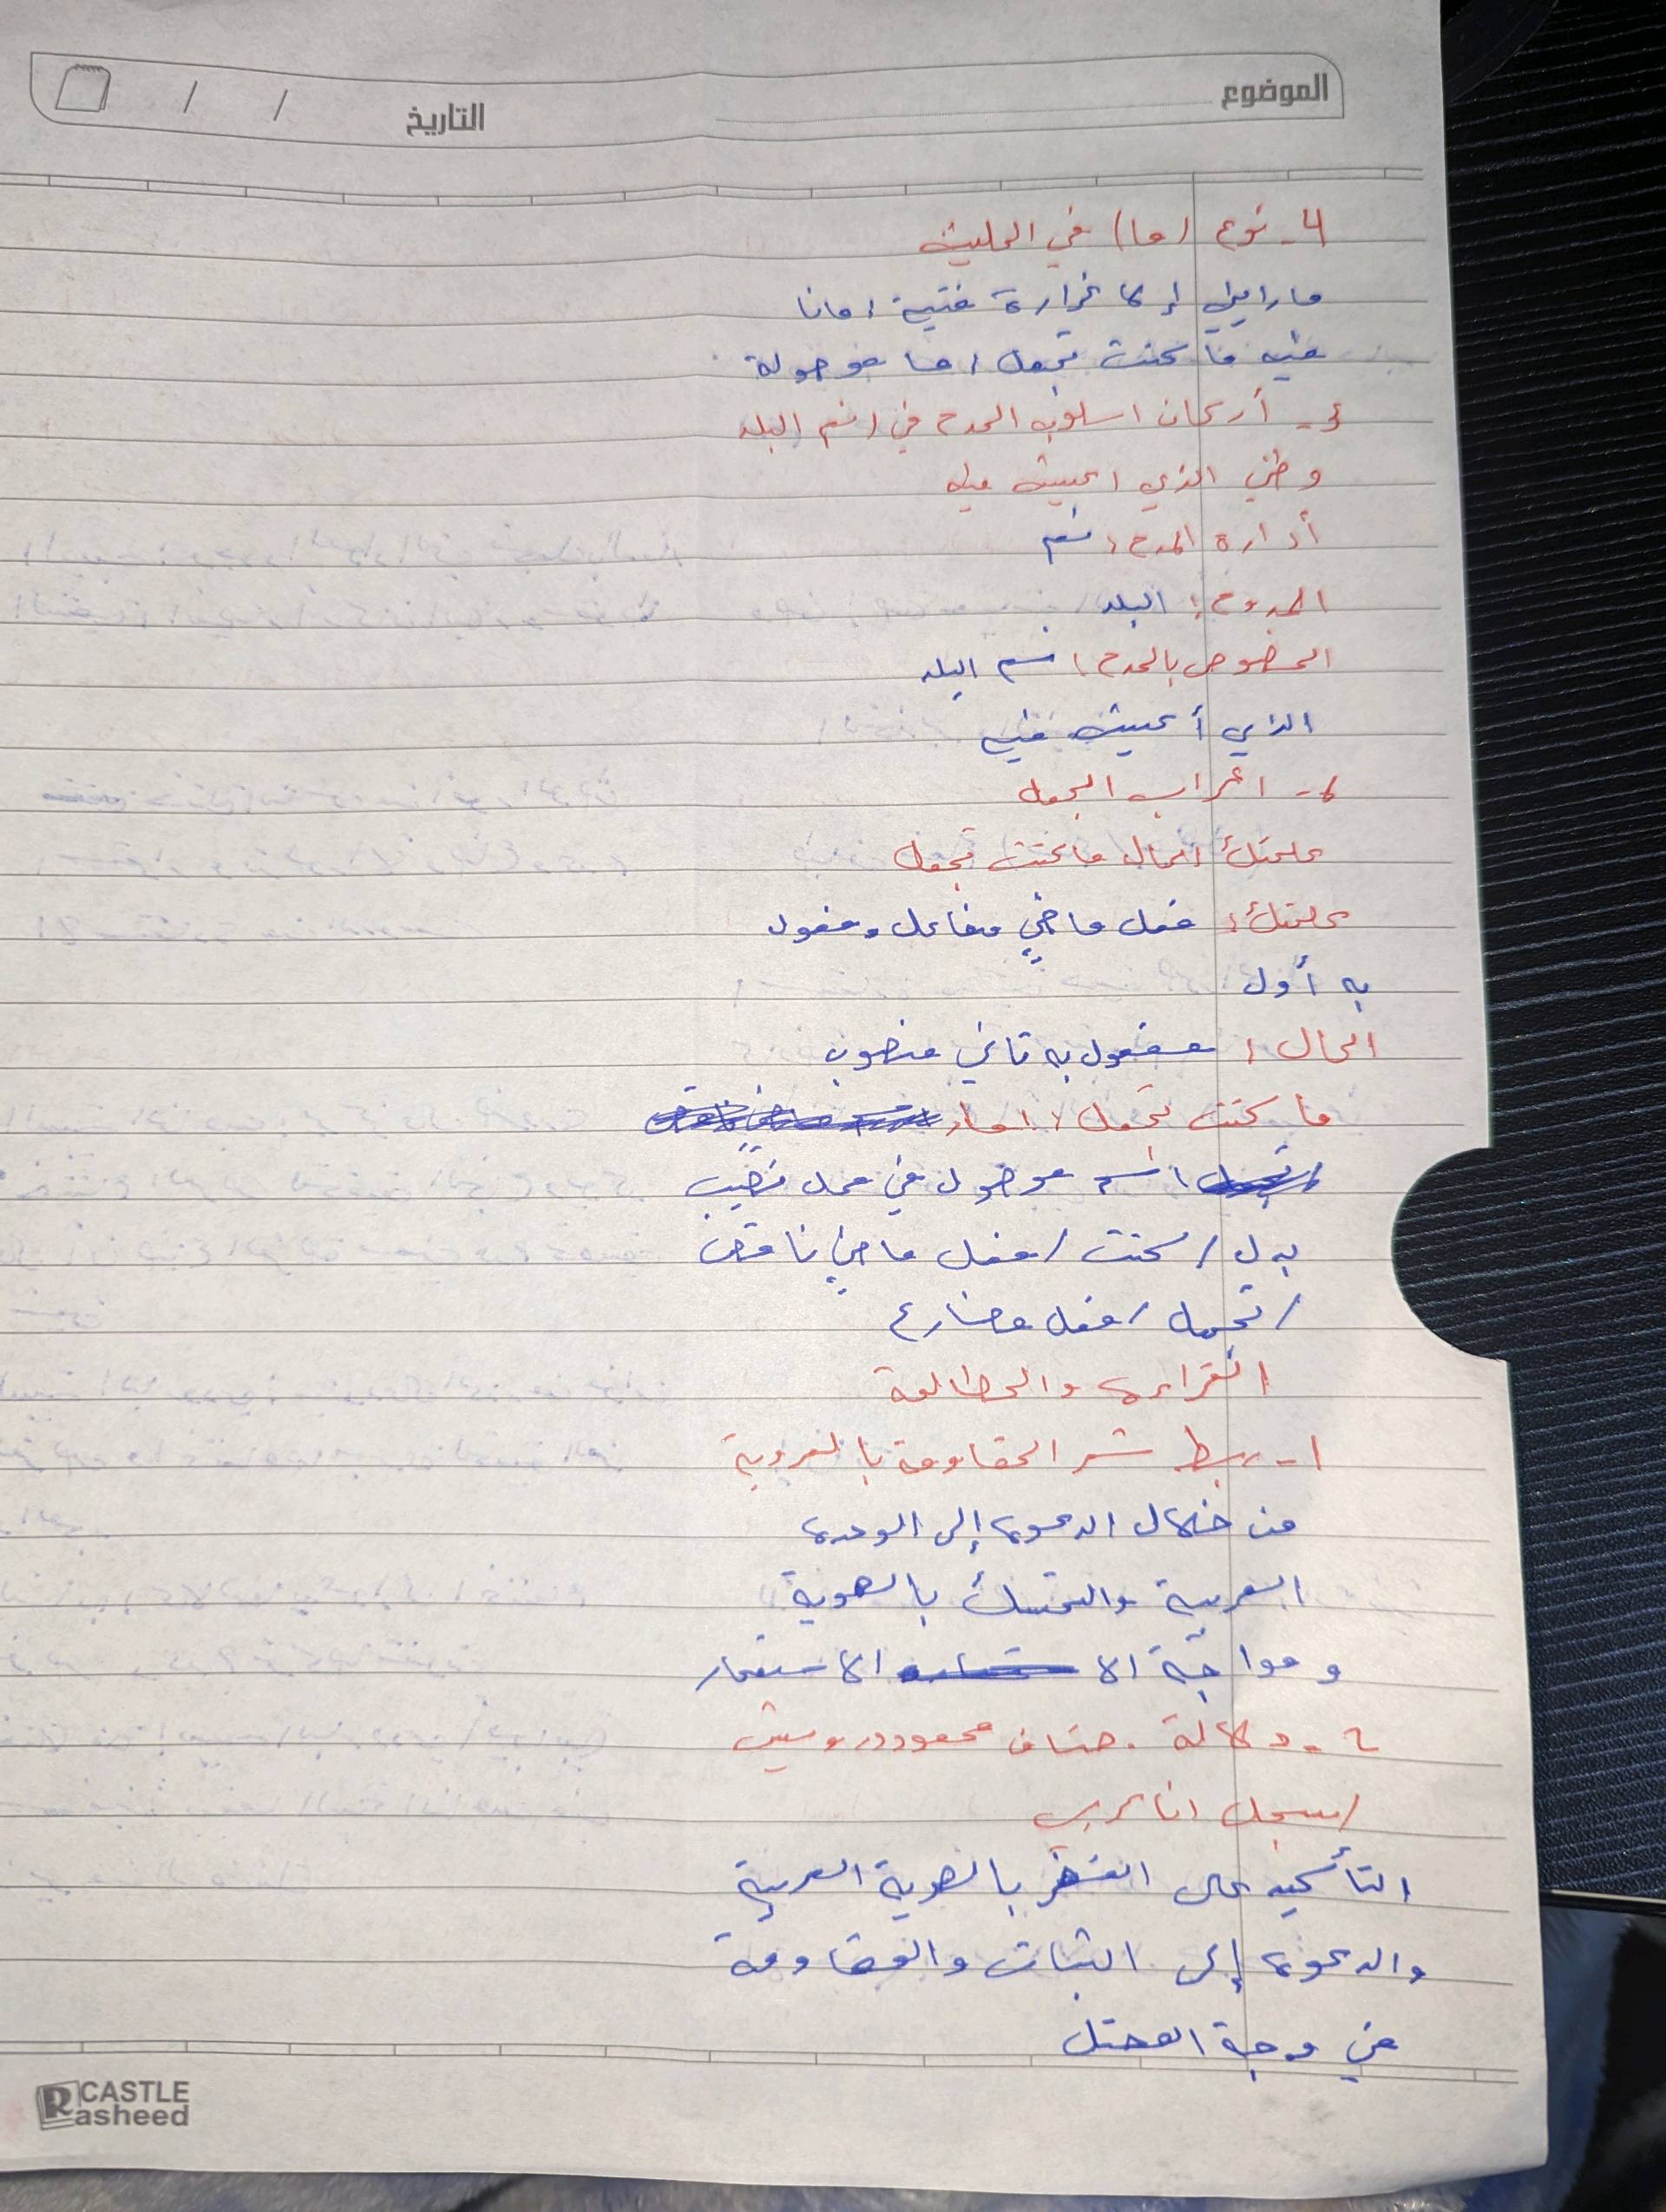 الموضوع
التاريخ / /
4- نوع (ما) في الجملتين
ما رأيك إلا غزارة فتية / مانا
فيه ما كنت تجمل / ما موصولة
5- أركان اسلوب المدح في / نعم البلد
وطني الذي اعيش فيه
أدارة المدح: نعم
الممدوح: البلد
المخصوص بالمدح: نعم البلد
الذي أعيش فيه
6- اعراب الجمل
علمتك الحال ما كنت تجهل
علمتك: فعل ماضي وفاعل ومفعول
به أول
الحال: مفعول به ثاني منصوب
ما كنت تجهل: / ما /
اسم موصول في محل نصب
بدل / كنت / فعل ماضي ناقص
/ تجهل / فعل مضارع
القراءة والمطالعة
1- ربط شعر المقاومة بالعروبة
من خلال الدعوة إلى الوحدة
العربية والتمسك بالهوية
ومواجة الا الاستعمار
2- دلالة هتاف محمود درويش
/ سجل انا عربي
التأكيد على الفخر بالهوية العربية
والدعوة إلى الثبات والمقاومة
في وجة المحتل
CASTLE
Rasheed